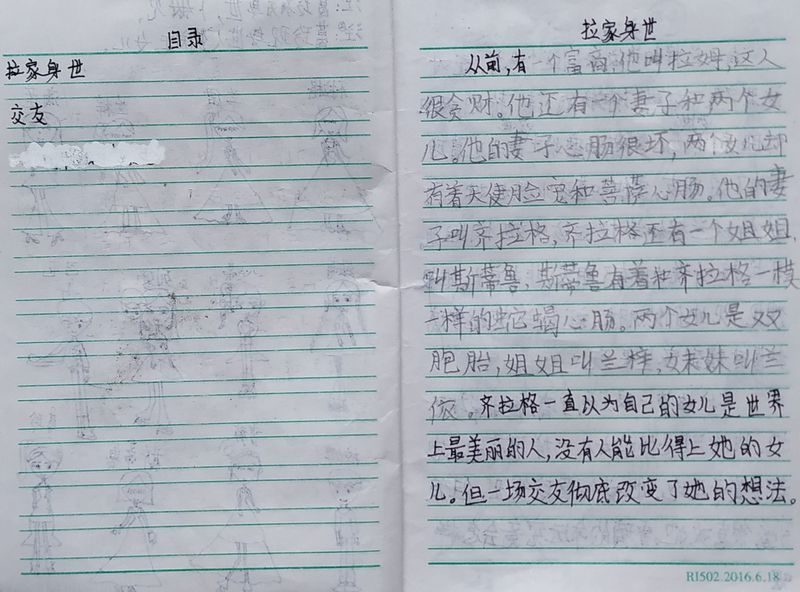 目录
拉家身世
交友
拉家身世
从前,有一个富商,他叫拉姆,这人
很贪财。他还有一个妻子和两个女
儿。他的妻子心肠很坏,两个女儿却
有着天使脸宽和菩萨心肠。他的妻
子叫齐拉格,齐拉格还有一个姐姐,
叫斯蒂鲁,斯蒂鲁有着和齐拉格一模
一样的蛇蝎心肠。两个女儿是双
胞胎,姐姐叫兰梓,妹妹叫兰
依。齐拉格一直以为自己的女儿是世界
上最美丽的人,没有人能比得上她的女
儿。但一场交友彻底改变了她的想法。
RI502.2016.6.18